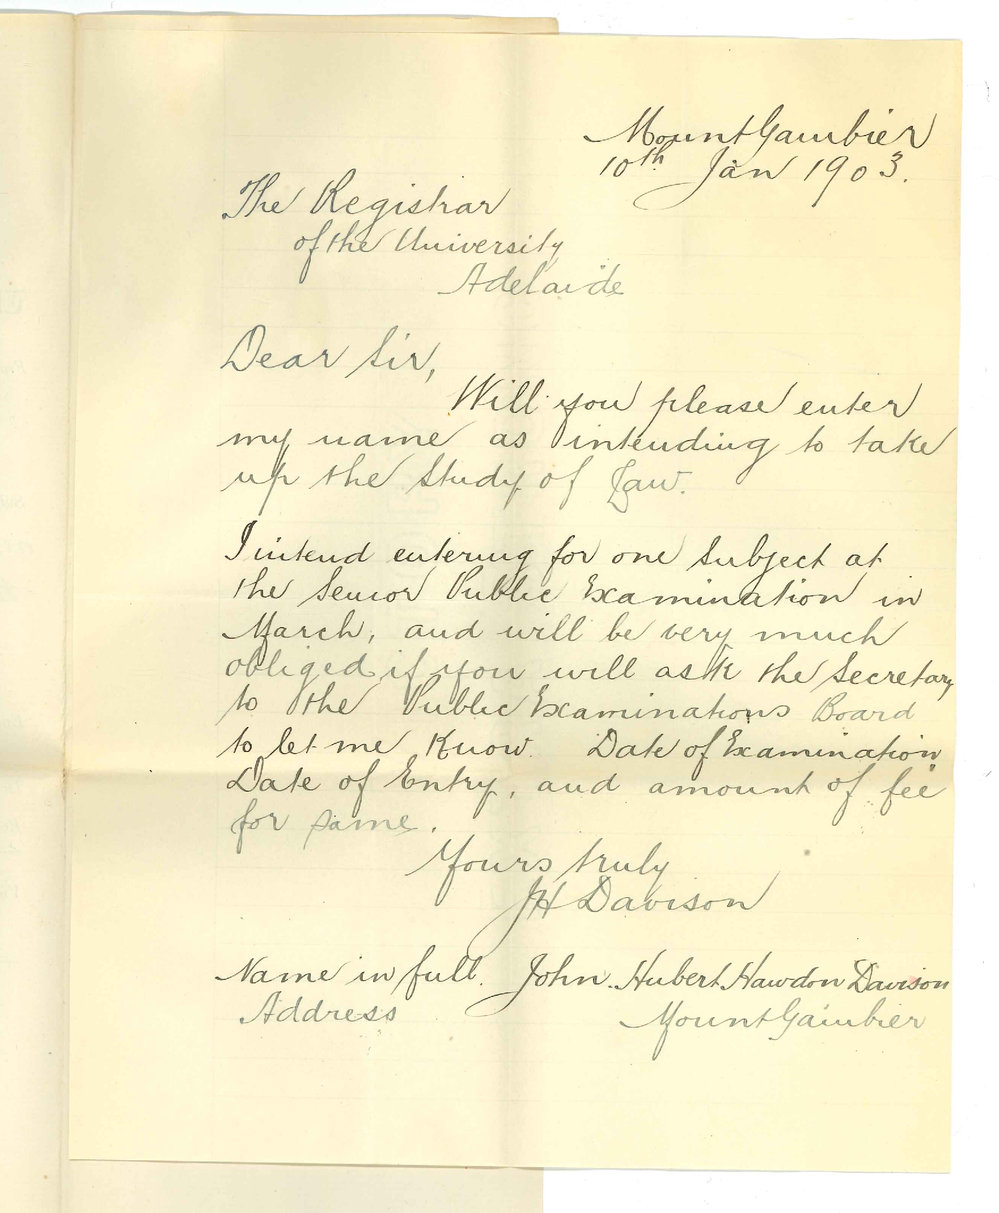 Mount Gambier
10th Jan 1903.
The Registrar
of the University
Adelaide
Dear Sir,
Will you please enter
my name as intending to take
up the Study of Law.
I intend entering for one Subject at
the Senior Public Examination in
March, and will be very much
obliged if you will ask the Secretary
to the Public Examinations Board
to let me know Date of Examination
Date of Entry, and amount of fee
for same.
Yours truly
JH Davison
Name in full. John Hubert Hawdon Davison
Address Mount Gambier